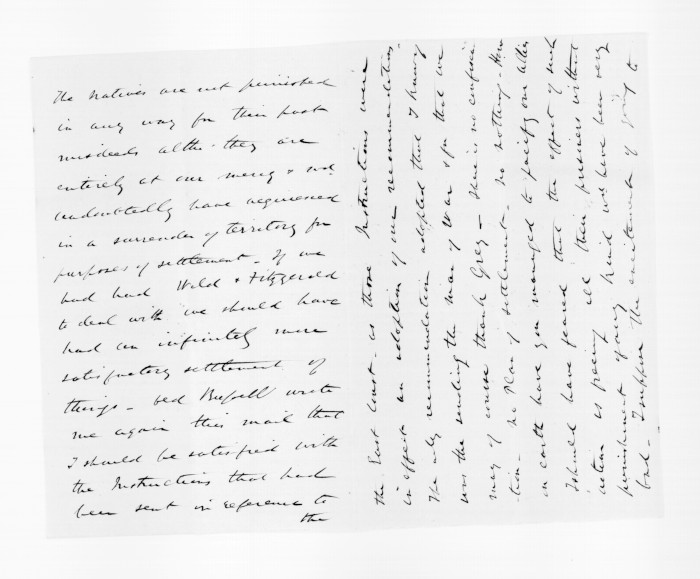 The Natives are not punished
in any way for their past
misdeeds altho' they are
entirely at our mercy & wd
undoubtedly have acquiesced
in a surrender of territory for
purposes of settlement - If we
had had Weld & Fitzgerald
to deal with we should have
had an infinitely more
satisfactory settlement of
things - Col Russell wrote
me again this mail that
I should be satisfied with
the Instructions that had
been sent in reference to
the
the East Coast - as those Instructions were
in effect an adoption of my recommendations -
The only recommendation adopted that I know of
was the sending the Man of War & for that we
may of course thank Grey - There is no confisca-
tion - no Plan of settlement - no nothing - How
on earth have you managed to pacify our allies
I should have feared that the effect of such
action as freeing all their prisoners without
punishment of any kind would have been very
bad - I suppose the excitement of going to